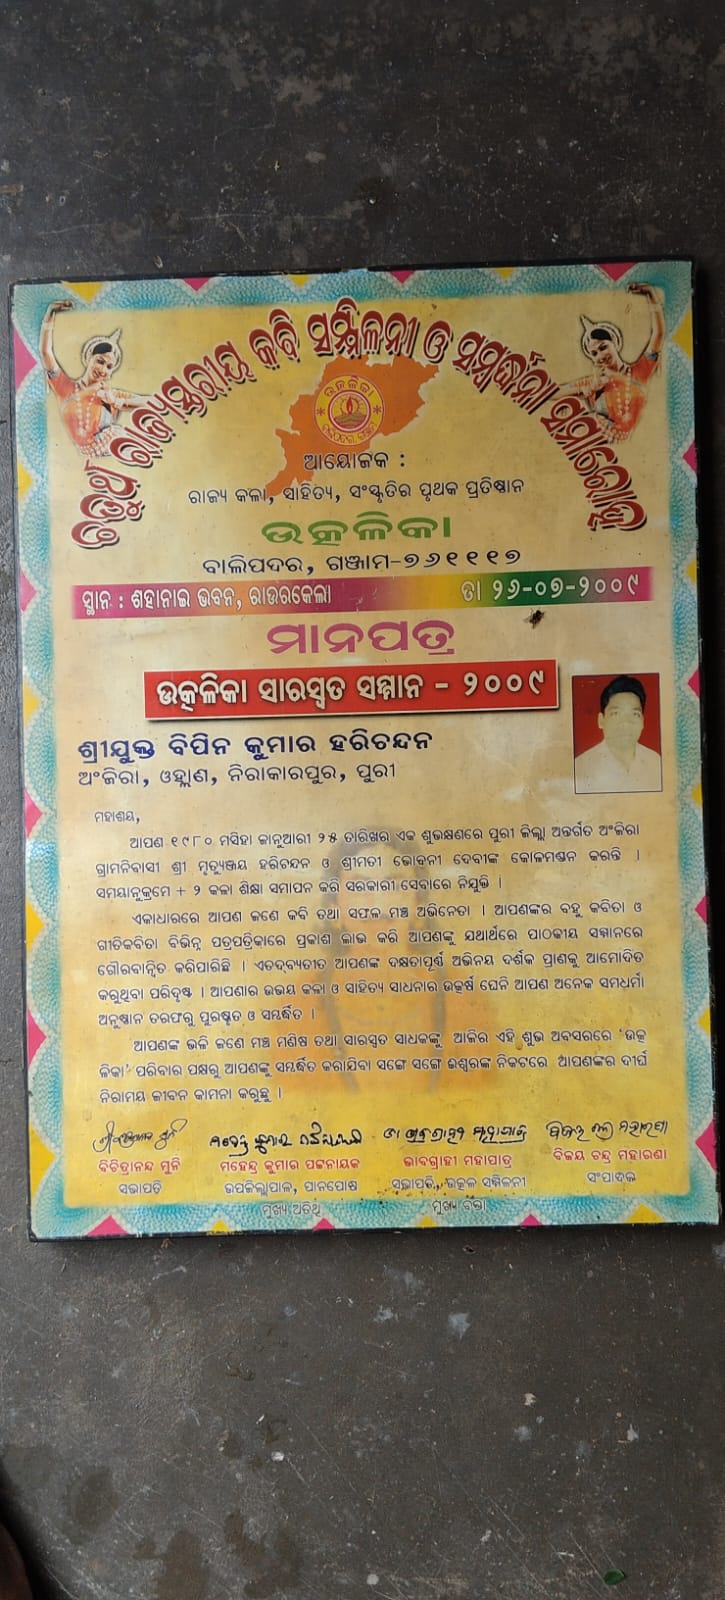 ଚତୁର୍ଥ ରାଜ୍ୟସ୍ତରୀୟ କବି ସମ୍ମିଳନୀ ଓ ସମ୍ବର୍ଦ୍ଧନା ସମାରୋହ
ଉତ୍କଳିକା
ବାଲିପଦର, ଗଞ୍ଜାମ
ଆୟୋଜକ :
ରାଜ୍ୟ କଳା, ସାହିତ୍ୟ, ସଂସ୍କୃତିର ପୃଥକ ପ୍ରତିଷ୍ଠାନ
ଉତ୍କଳିକା
ବାଲିପଦର, ଗଞ୍ଜାମ-୭୬୧୧୧୭
ସ୍ଥାନ : ଶହାନାଇ ଭବନ, ରାଉରକେଲା ତା ୨୬-୦୭-୨୦୦୯
ମାନପତ୍ର
ଉତ୍କଳିକା ସାରସ୍ୱତ ସମ୍ମାନ - ୨୦୦୯
ଶ୍ରୀଯୁକ୍ତ ବିପିନ କୁମାର ହରିଚନ୍ଦନ
ଅଂଜିରା, ଓହ୍ଲାଣ, ନିରାକାରପୁର, ପୁରୀ
ମହାଶୟ,
ଆପଣ ୧୯୮୦ ମସିହା ଜାନୁଆରୀ ୨୫ ତାରିଖର ଏକ ଶୁଭକ୍ଷଣରେ ପୁରୀ ଜିଲ୍ଲା ଅନ୍ତର୍ଗତ ଅଂଜିରା
ଗ୍ରାମନିବାସୀ ଶ୍ରୀ ମୃତ୍ୟୁଞ୍ଜୟ ହରିଚନ୍ଦନ ଓ ଶ୍ରୀମତୀ ଭୋବନୀ ଦେବୀଙ୍କ କୋଳମଣ୍ଡନ କରନ୍ତି ।
ସମୟାନୁକ୍ରମେ + ୨ କଳା ଶିକ୍ଷା ସମାପନ କରି ସରକାରୀ ସେବାରେ ନିଯୁକ୍ତି ।
ଏକାଧାରରେ ଆପଣ ଜଣେ କବି ତଥା ସଫଳ ମଞ୍ଚ ଅଭିନେତା । ଆପଣଙ୍କର ବହୁ କବିତା ଓ
ଗୀତିକବିତା ବିଭିନ୍ନ ପତ୍ରପତ୍ରିକାରେ ପ୍ରକାଶ ଲାଭ କରି ଆପଣଙ୍କୁ ଯଥାର୍ଥରେ ପାଠକୀୟ ସମ୍ମାନରେ
ଗୌରବାନ୍ୱିତ କରିପାରିଛି । ଏତଦ୍‌ବ୍ୟତୀତ ଆପଣଙ୍କ ଦକ୍ଷତାପୂର୍ଣ୍ଣ ଅଭିନୟ ଦର୍ଶକ ପ୍ରାଣକୁ ଆମୋଦିତ
କରୁଥିବା ପରିଦୃଷ୍ଟ । ଆପଣାର ଉଭୟ କଳା ଓ ସାହିତ୍ୟ ସାଧନାର ଉତ୍କର୍ଷ ଘେନି ଆପଣ ଅନେକ ସମଧର୍ମା
ଅନୁଷ୍ଠାନ ତରଫରୁ ପୁରଷ୍କୃତ ଓ ସମ୍ବର୍ଦ୍ଧିତ ।
ଆପଣଙ୍କ ଭଳି ଜଣେ ମଞ୍ଚ ମଣିଷ ତଥା ସାରସ୍ୱତ ସାଧକଙ୍କୁ ଆଜିର ଏହି ଶୁଭ ଅବସରରେ 'ଉତ୍କ
ଳିକା' ପରିବାର ପକ୍ଷରୁ ଆପଣଙ୍କୁ ସମ୍ବର୍ଦ୍ଧିତ କରାଯିବା ସଙ୍ଗେ ସଙ୍ଗେ ଈଶ୍ୱରଙ୍କ ନିକଟରେ ଆପଣଙ୍କର ଦୀର୍ଘ
ନିରାମୟ ଜୀବନ କାମନା କରୁଛୁ ।
ବିଚିତ୍ରାନନ୍ଦ ମୁନି ମହେନ୍ଦ୍ର କୁମାର ପଟ୍ଟନାୟକ ଭାବଗ୍ରାହୀ ମହାପାତ୍ର ବିଜୟ ଚନ୍ଦ୍ର ମହାରଣା
ସଭାପତି ଉପଜିଲ୍ଲାପାଳ, ପାନପୋଷ ସଭାପତି, ଉତ୍କଳ ସମ୍ମିଳନୀ ସଂପାଦକ
ମୁଖ୍ୟ ଅତିଥି ମୁଖ୍ୟ ବକ୍ତା